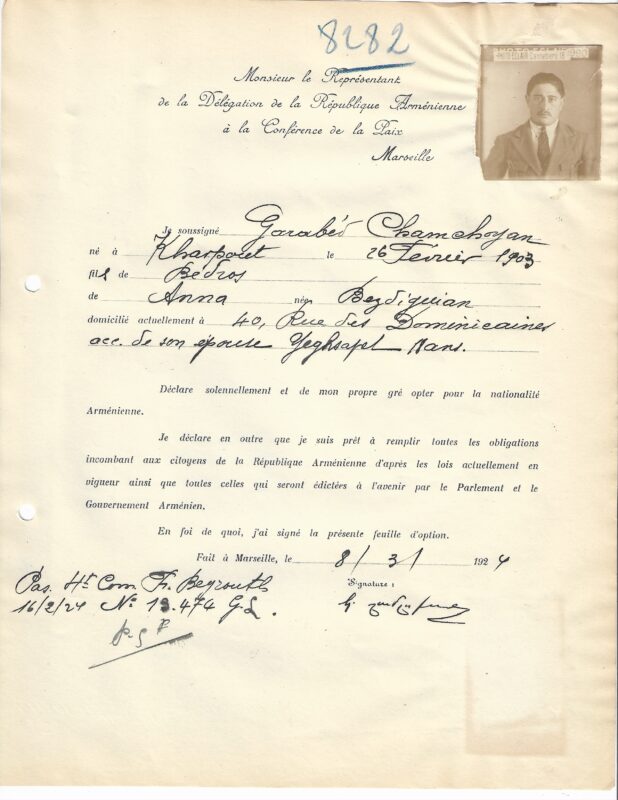 8282
Monsieur le Représentant
de la Délégation de la République Arménienne
à la Conférence de la Paix
Marseille
Je soussigné Garabéd Chamchoyan
né à Kharpout le 26 Février 1903
fils de Bedros
de Anna née Bezdiguian
domicilié actuellement à 40, Rue des Dominicaines
acc. de son épouse Yeghsapet Nans.
Déclare solennellement et de mon propre gré opter pour la nationalité
Arménienne.
Je déclare en outre que je suis prêt à remplir toutes les obligations
incombant aux citoyens de la République Arménienne d'après les lois actuellement en
vigueur ainsi que toutes celles qui seront édictées à l'avenir par le Parlement et le
Gouvernement Arménien.
En foi de quoi, j'ai signé la présente feuille d'option.
Fait à Marseille, le 8/ 3/ 1924
Signature :
Pas. Ht Com. Fr. Beyrouth
16/2/24 No 13.474 G.S.